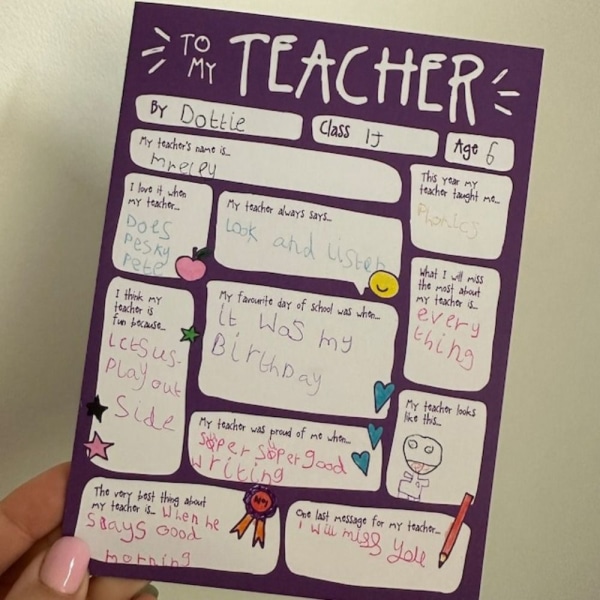 TO
MY
TEACHER
By Dottie
Class 1J
Age 6
My teacher's name is...
This year my
teacher taught me...
Phonics
I love it when
my teacher...
Does
Pesky
Pete
My teacher always says...
Look and listen
What I will miss
the most about
my teacher is...
every
thing
I think my
teacher is
fun because...
Letsus
Play out
Side
My favourite day of school was when...
it was my
BirthDay
My teacher was proud of me when...
super super good
writing
My teacher looks
like this...
The very best thing about
my teacher is... When he
Says Good
morning
One last message for my teacher...
I will miss you